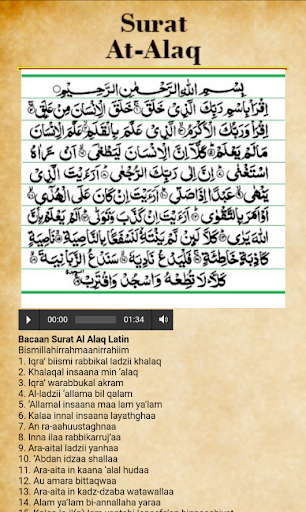 Surat
At-Alaq
بِسْمِ اللهِ الرَّحْمٰنِ الرَّحِيْمِ
اِقْرَأْ بِاسْمِ رَبِّكَ الَّذِيْ خَلَقَ ۝ خَلَقَ الْاِنْسَانَ مِنْ عَلَقٍ ۝
اِقْرَأْ وَرَبُّكَ الْاَكْرَمُ ۝ الَّذِيْ عَلَّمَ بِالْقَلَمِ ۝ عَلَّمَ الْاِنْسَانَ
مَالَمْ يَعْلَمْ ۝ كَلَّا اِنَّ الْاِنْسَانَ لَيَطْغٰى ۝ اَنْ رَّاٰهُ
اسْتَغْنٰى ۝ اِنَّ اِلٰى رَبِّكَ الرُّجْعٰى ۝ اَرَءَيْتَ الَّذِيْ
يَنْهٰى ۝ عَبْدًا اِذَا صَلّٰى ۝ اَرَءَيْتَ اِنْ كَانَ عَلَى الْهُدٰى ۝
اَوْ اَمَرَ بِالتَّقْوٰى ۝ اَرَءَيْتَ اِنْ كَذَّبَ وَتَوَلّٰى ۝ اَلَمْ يَعْلَمْ بِاَنَّ
اللهَ يَرٰى ۝ كَلَّا لَئِنْ لَّمْ يَنْتَهِ لَنَسْفَعًا بِالنَّاصِيَةِ ۝ نَاصِيَةٍ
كَاذِبَةٍ خَاطِئَةٍ ۝ فَلْيَدْعُ نَادِيَهٗ ۝ سَنَدْعُ الزَّبَانِيَةَ ۝
كَلَّا لَا تُطِعْهُ وَاسْجُدْ وَاقْتَرِبْ ۝
00:00 01:34
Bacaan Surat Al Alaq Latin
Bismillahirrahmaanirrahiim
1. Iqra' biismi rabbikal ladzii khalaq
2. Khalaqal insaana min 'alaq
3. Iqra' warabbukal akram
4. Al-ladzii 'allama bil qalam
5. 'Allamal insaana maa lam ya'lam
6. Kalaa innal insaana layathghaa
7. An ra-aahuustaghnaa
8. Inna ilaa rabbikarruj'aa
9. Ara-aital ladzii yanhaa
10. 'Abdan idzaa shallaa
11. Ara-aita in kaana 'alal hudaa
12. Au amara bittaqwaa
13. Ara-aita in kadz-dzaba watawallaa
14. Alam ya'lam bi-annallaha yaraa